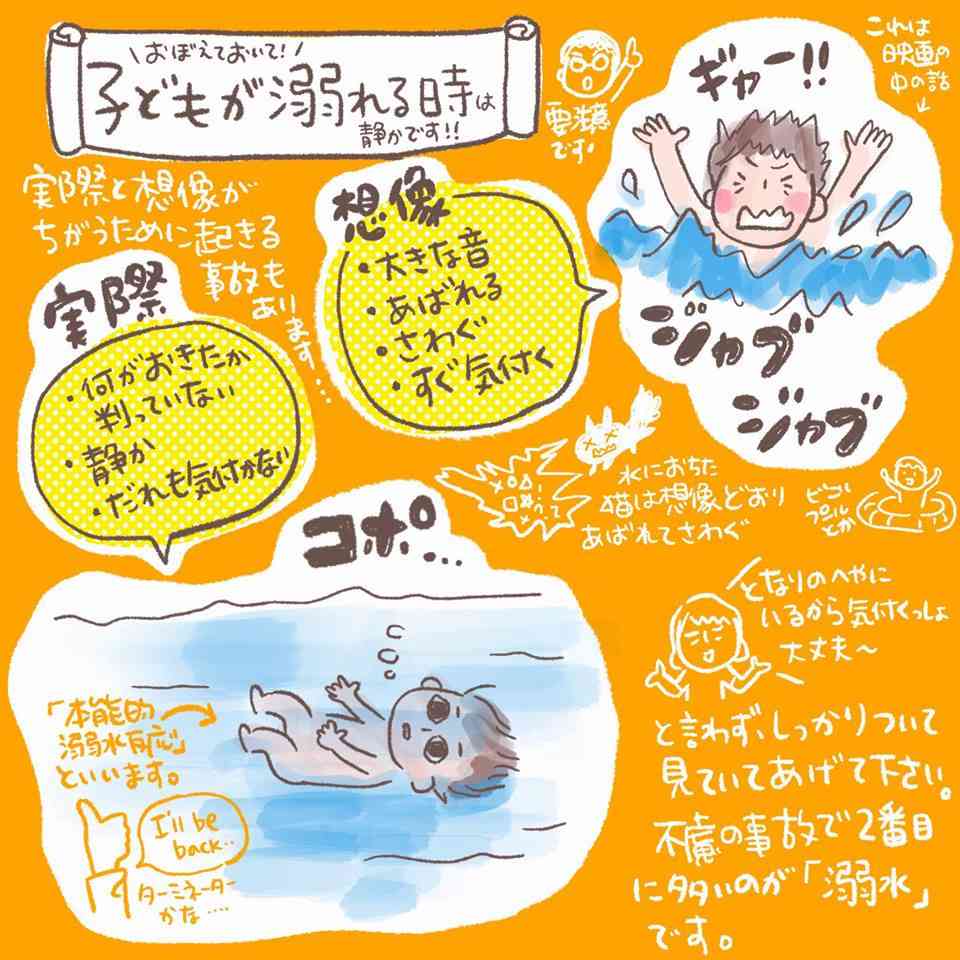 \おぼえておいて!/
子どもが溺れる時は
静かです!!
要注意
です。
これは
映画の
中の話
↓
ギャー!!
ジャブ
ジャブ
実際と想像が
ちがうために起きる
事故も
あり
ます…
想像
・大きな音
・あばれる
・さわぐ
・すぐ気付く
実際
・何がおきたか
判っていない
・静か
・だれも気付かない
水におちた
猫は想像どおり
あばれてさわぐ
ビニール
プール
とか
コポ…
「本能的
溺水反応」
といいます。
I'll be
back..
ターミネーター
かな….
となりのへやに
いるから気付くっしょ
大丈夫〜
と言わず、しっかりついて
見ていてあげて下さい。
不慮の事故で2番目
に多いのが「溺水」
です。